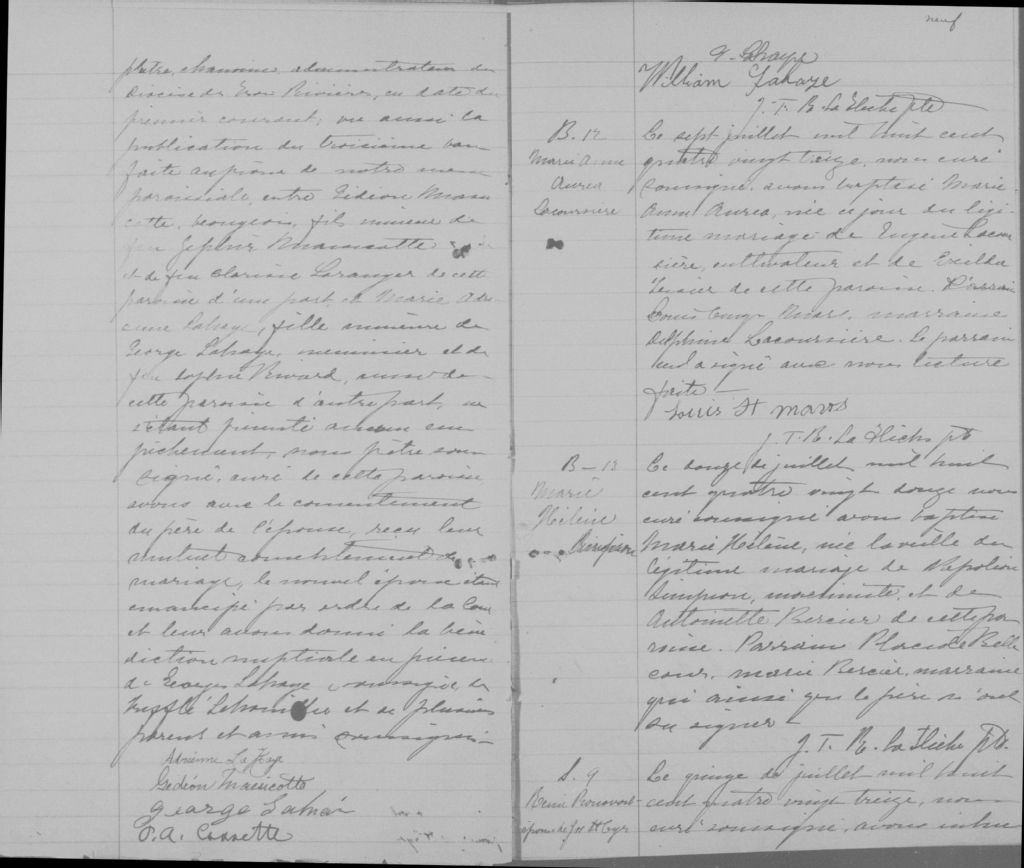 prêtre, chanoine, administrateur du
Diocèse de Trois Rivières, en date du
premier courant, vu aussi la
publication du troisième ban
faite au prône de notre messe
paroissiale, entre Gédéon Massi
cotte, bourgeois, fils mineur de
feu Zephir Massicotte
et de feu Clarisse Loranger de cette
paroisse d'une part, et Marie Adri
enne Lahaye, fille mineure de
George Lahaye, menuisier et de
feu Sophie Brouard, aussi de
cette paroisse d'autre part, ne
s'étant présenté aucun em
pêchement, nous prêtre sous
signé, curé de cette paroisse
avons avec le consentement
du père de l'épouse, reçu leur
mutuel consentement de
mariage, le nouvel époux étant
émancipé par ordre de la Cour
et leur avons donné la béné
diction nuptiale en présence
de Georges Lahaye soussigné, de
et de plusieurs
parents et amis soussignés
Adrienne La Haye
Gédéon Massicotte
George Lahaie
P. A. Cossette
neuf
G. Lahaye
William Lahaye
J. T. R. La Flèche ptre
B. 12
Marie Anne
Aurea
Lacoursière
Ce sept juillet mil huit cent
quatre vingt treize, nous curé
soussigné avons baptisé Marie
Anne Aurea, née ce jour du légi
time mariage de Eugène Lacour
sière, cultivateur et de Exilda
de cette paroisse. Parrain
Louis St Mars, marraine
Delphine Lacoursière. Le parrain
seul a signé avec nous lecture
faite
Louis St Mars
J. T. R. La Flèche ptr
B – 13
Marie
Hélène
Simpson
Ce douze de juillet mil huit
cent quatre vingt douze nous
curé soussigné avons baptisé
Marie Hélène, née la veille du
légitime mariage de Napoléon
Simpson, machiniste, et de
Antoinette Bercier de cette pa
roisse. Parrain Placide Belle
cour, Marie Bercier, marraine
qui ainsi que le père n'ont
su signer
J. T. R. La Flèche ptr.
S. 9
épouse de Jos St Cyr
Le quinze de juillet mil huit
cent quatre vingt treize, nous
curé soussigné, avons inhu